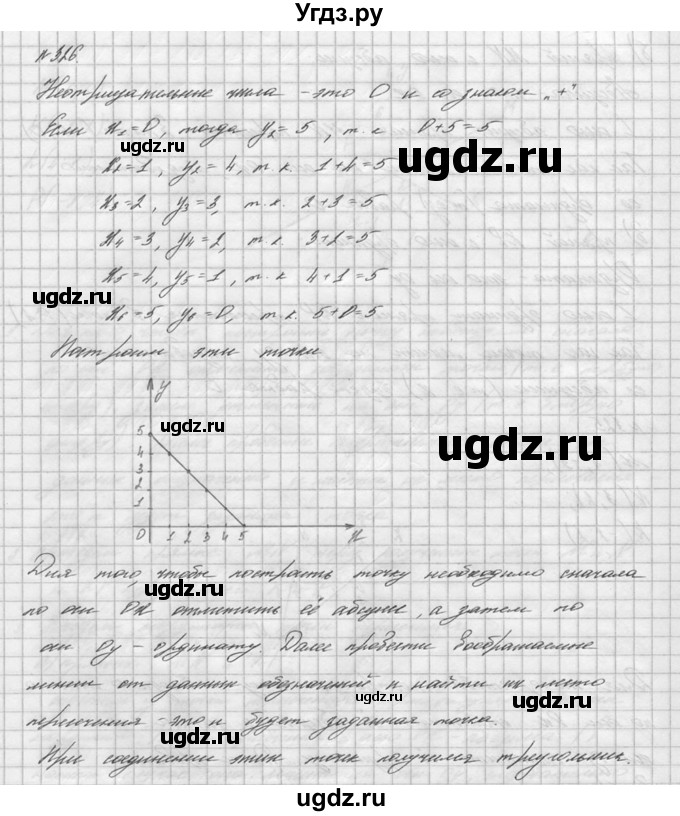 Угдз.ру
№326.
Неотрицательные числа - это 0 и со знаком „+"
Если x₁=0, тогда y₂=5, т.к 0+5=5
x₂=1, y₂=4, т.к. 1+4=5
x₃=2, y₃=3, т.к. 2+3=5
x₄=3, y₄=2, т.к. 3+2=5
x₅=4, y₅=1, т.к. 4+1=5
x₆=5, y₆=0, т.к. 5+0=5
Построим эти точки
y
5
4
3
2
1
0 1 2 3 4 5 x
Для того, чтобы построить точку необходимо сначала
по оси Ox отметить её абсцисс, а затем по
оси Oy - ординату. Далее провести воображаемые
линии от данных обозначений и найти их место
пересечения - это и будет заданная точка.
При соединении этих точек получился треугольник.
ugdz.ru
ugdz.ru
ugdz.ru
ugdz.ru
ugdz.ru
ugdz.ru
ugdz.ru
ugdz.ru
ugdz.ru